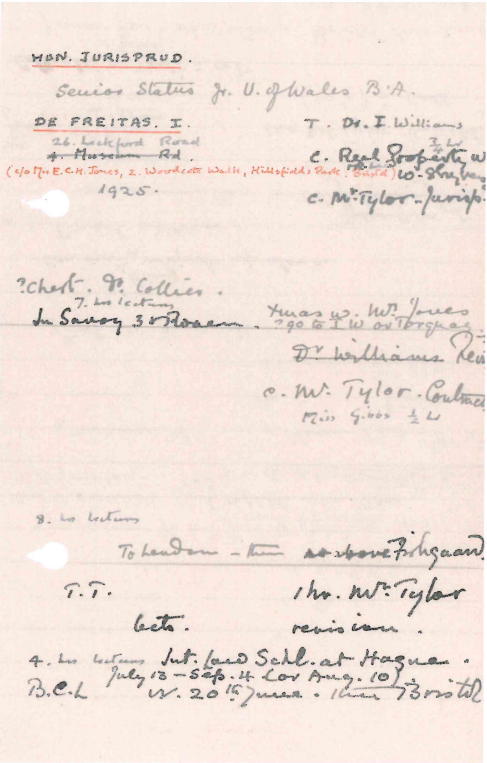 HON. JURISPRUD.
Senior Status Jr. U. of Wales B.A.
DE FREITAS. I.
T. Dr. I. Williams
26. Leckford Road
4. Museum Rd.
c. Real Property w
(c/o Mrs E.C.H. Jones, 2. Woodcote Walk, Hillsfields Park. Bristol)
1925.
c. Mr Tylor - Jurisp.
?Chest. Dr. Collier.
7. hrs lectures
In Savoy 3 or
Xmas w. Mrs Jones
? go to I.W or Torquay
Dr Williams Revi
c. Mr. Tylor. Contract
Miss Gibbs ½ hr
8. hrs lectures
To London - then as above Fishguard.
T.T.
1 hr. Mr. Tylor
lects. revision.
4. hrs lectures Int. Law Schl. at Hague.
July 13 - Sep. 4 (or Aug. 10)
B.C.L V. 20th June. then Bristol